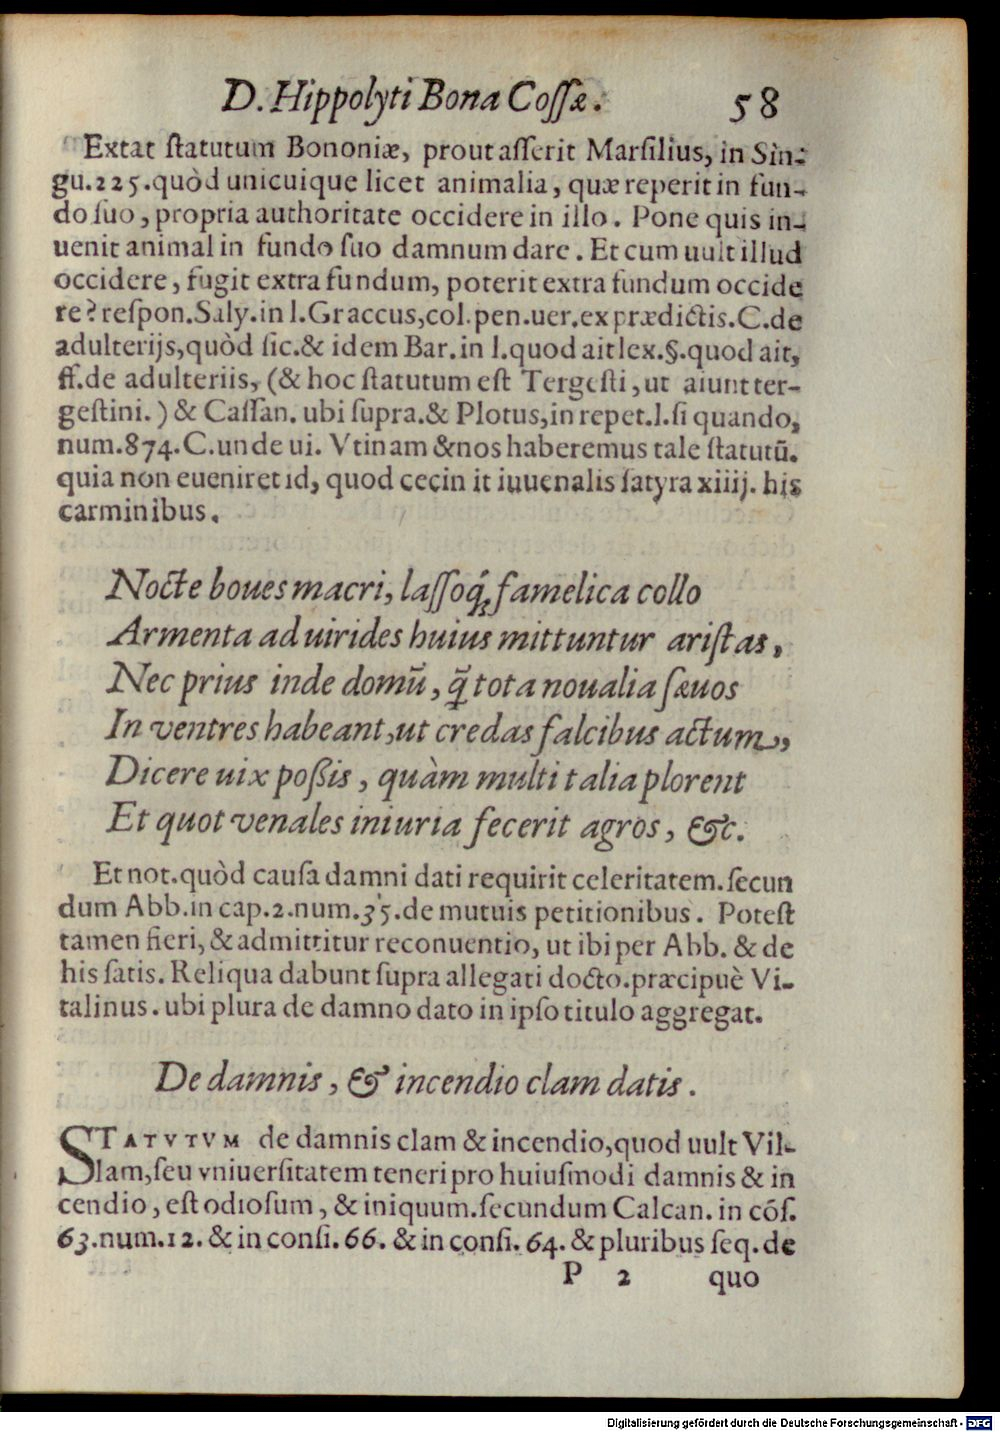 D. Hippolyti Bona Cossæ. 58
Extat ſtatutum Bononiæ, prout aſſerit Marſilius, in Sin-
gu.225.quòd unicuique licet animalia, quæ reperit in fun-
do ſuo, propria authoritate occidere in illo. Pone quis in-
uenit animal in fundo ſuo damnum dare. Et cum uult illud
occidere, fugit extra fundum, poterit extra fundum occide
re? reſpon.Saly.in l.Graccus,col.pen.uer.ex prædictis.C.de
adulterijs,quòd ſic.& idem Bar.in l.quod ait lex.§.quod ait,
ff.de adulteriis, (& hoc ſtatutum eſt Tergeſti, ut aiunt ter-
geſtini.) & Caſſan. ubi ſupra.& Plotus,in repet.l.ſi quando,
num.874.C.unde ui. Vtinam & nos haberemus tale ſtatutũ.
quia non eueniret id, quod cecin it iuuenalis ſatyra xiiij. his
carminibus.
Nocte boues macri, laſſoq́; famelica collo
Armenta ad uirides huius mittuntur ariſtas,
Nec prius inde domũ, q̃ tota noualia ſæuos
In ventres habeant,ut credas falcibus actum,
Dicere uix poßis, quàm multi talia plorent
Et quot venales iniuria fecerit agros, &c.
Et not.quòd cauſa damni dati requirit celeritatem.ſecun
dum Abb.in cap.2.num.35.de mutuis petitionibus. Poteſt
tamen fieri, & admittitur reconuentio, ut ibi per Abb. & de
his ſatis. Reliqua dabunt ſupra allegati docto.præcipuè Vi-
talinus. ubi plura de damno dato in ipſo titulo aggregat.
De damnis, & incendio clam datis.
STATVTVM de damnis clam & incendio,quod uult Vil-
lam,ſeu vniuerſitatem teneri pro huiuſmodi damnis & in
cendio, eſt odioſum, & iniquum.ſecundum Calcan. in cõſ.
63.num.12. & in conſi.66. & in conſi.64. & pluribus ſeq. de
P 2 quo
Digitalisierung gefördert durch die Deutsche Forschungsgemeinschaft - DFG